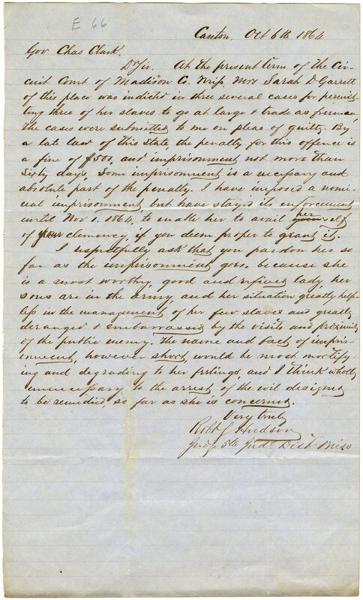 E 66
Canton, Oct 6th 1864
Gov Chas Clark,
D Sir, At the present term of the Cir-
cuit Court of Madison Co. Miss, Mrs Sarah D Garrett
of this place was indicted in three several cases for permit-
ting three of her slaves to go at large & trade as firemen
the cases were submitted to me on pleas of guilty. By
a late law of this state the penalty for this offence is
a fine of $500, and imprisonment not more than
Sixty days, Some imprisonment is a necessary and
absolute part of the penalty. I have imposed a nomi-
nal imprisonment but have stayed its enforcement
until Nov 1. 1864, to enable her to avail her self
of your clemency if you deem proper to grant it.
I respectfully ask that you pardon her so
far as the imprisonment goes, because she
is a most worthy, good and refined lady, her
sons are in the army, and her situation greatly help-
less in the management of her few slaves and greatly
deranged & embarrassed by the visits and proximity
of the public enemy. The name and fact of impris-
onment, however short, would be most mortify-
ing and degrading to her feelings and I think wholly
unnecessary to the arrest of the evil designed
to be remedied, so far as she is concerned.
Very truly
Robt C Hudson
Judge 5th Jud Dist Miss